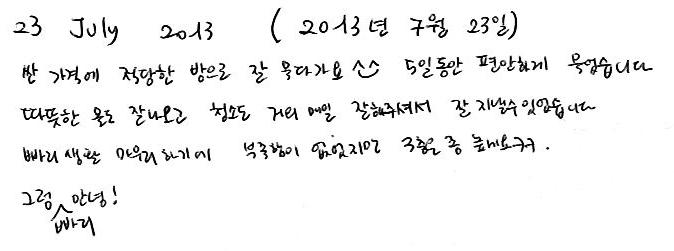 23 July 2013 (2013년 7월 23일)
싼 가격에 적당한 방으로 잘 묵다가요 ^^ 5일동안 편안하게 묵었습니다
따뜻한 물도 잘나오고 청소도 거의 매일 잘해주셔서 잘 지낼수있었습니다
빠리 생활 마무리하기에 부족함이 없었지만 3층은 좀 높네요ㅋㅋ.
그럼 안녕!
빠리